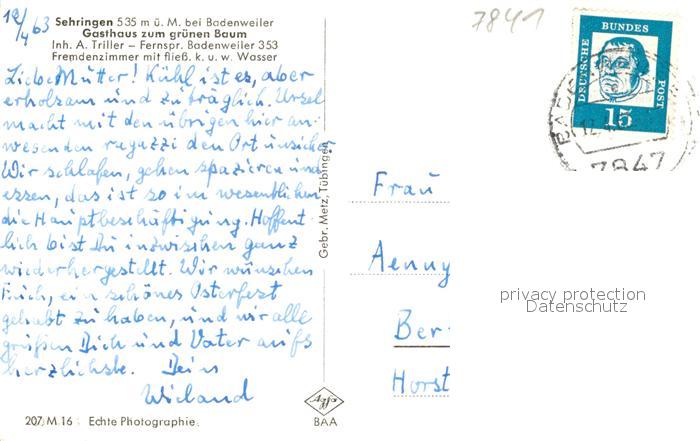 12/4 63
Sehringen 535 m ü. M. bei Badenweiler
Gasthaus zum grünen Baum
Inh. A. Triller – Fernspr. Badenweiler 353
Fremdenzimmer mit fließ. k. u. w. Wasser
Liebe Mutter! Kühl ist es, aber
erholsam und zuträglich. Ursel
macht mit den übrigen hier an-
wesenden ragazzi den Ort unsicher
Wir schlafen, gehen spazieren und
essen, das ist so im wesentlichen
die Hauptbeschäftigung. Hoffent-
lich bist Du inzwischen ganz
wiederhergestellt. Wir wünschen
Euch, ein schönes Osterfest
gehabt zu haben, und wir alle
grüßen Dich und Vater aufs
herzlichste. Dein
Wieland
207/M.16 Echte Photographie
Gebr. Metz, Tübingen
Agfa
BAA
7841
DEUTSCHE
BUNDES
POST
15
BAD
7847
Frau
Aenny
Ber-
Horst
privacy protection
Datenschutz